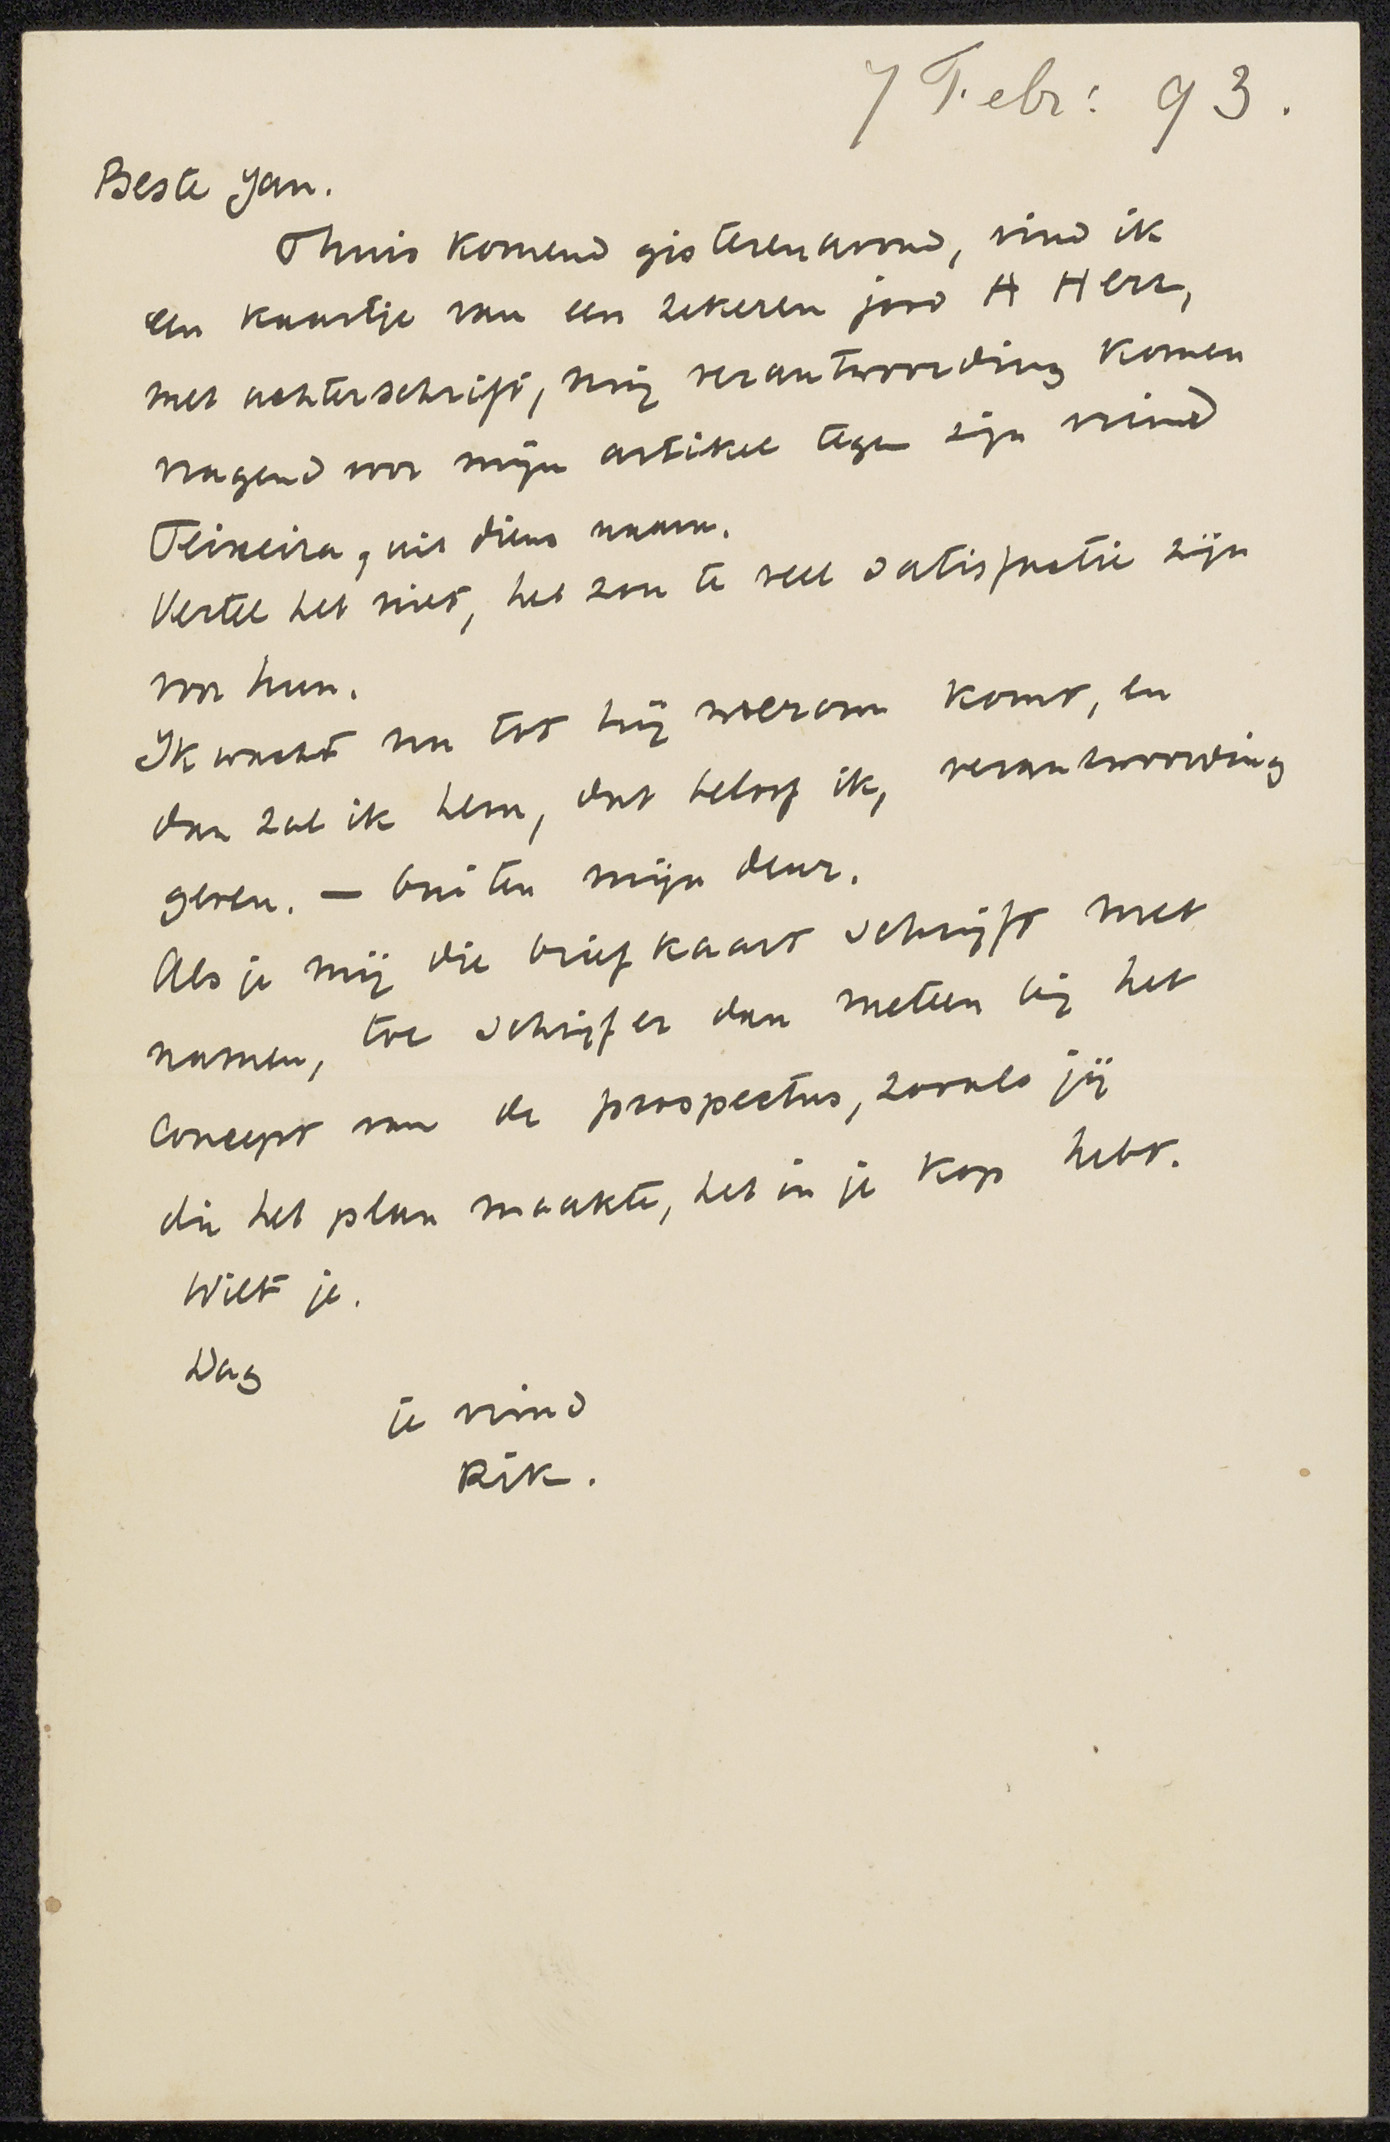 7 Febr: 93.
Beste Jan.
Thuis komend gisterenavond, vind ik
een kaartje van een zekeren jood A Herz,
met achterschrift, mij verantwoording komen
vragend voor mijn artikel tegen zijn vriend
Teixeira, uit diens naam.
Vertel het niet, het zou te veel satisfactie zijn
voor hun.
Ik wacht nu tot hij weerom komt, en
dan zal ik hem, dat beloof ik, verantwoording
geven. — buiten mijn deur.
Als je mij die briefkaart schrijft met
namen, toe schrijf er dan meteen bij het
concept van de prospectus, zooals jij
die het plan maakte, het in je kop hebt.
Wilt je.
Dag
je vriend
Rik.